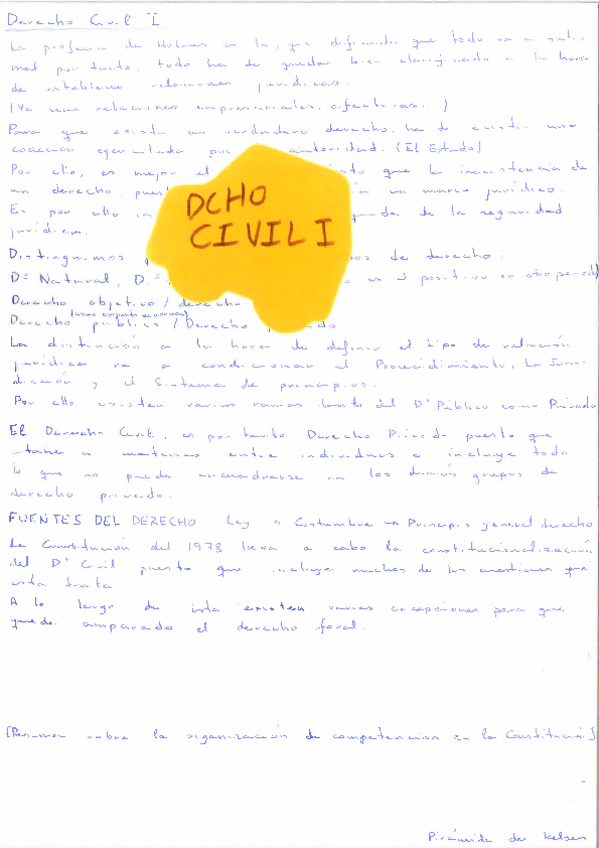 Derecho Civil I
La profecía de Holmes es la, que difunde que todo va a salir
mal por tanto, todo ha de quedar bien clasificado a la hora
de establecer relaciones jurídicas.
(Ya sean relaciones empresariales, afectivas.. )
Para que exista un verdadero derecho, ha d existir una
coacción ejercitada por autoridad. (El Estado)
Por ello, es mejor el que la inexistencia de
un derecho, un marco jurídico.
Es por ello de la seguridad
jurídica.
DCHO
CIVIL I
Distinguimos de derecho:
Dº Natural, Dº es el positivo en otro
Derecho objetivo / derecho
Derecho público / Derecho
La distinción a la hora de definir el tipo de relación
jurídica va a condicionar el Procedimiento, La Juris-
dicción y el Sistema de principios.
Por ello existen varias ramas tanto del Dº Público como Privado
El Derecho Civil, es por tanto Derecho Privado puesto que
materias entre individuos e incluye todo
lo que no pueda encuadrarse en los demás grupos de
derecho privado.
FUENTES DEL DERECHO Ley o Costumbre Principio general derecho
La Constitución del 1978 lleva a cabo la constitucionalización
del Dº Civil puesto que incluye muchas de las cuestiones que
esta trata
A lo largo de esta existen varias excepciones para que
quede amparado el derecho foral.
sobre la organización de competencias en la Constitució]
Pirámide de Kelsen